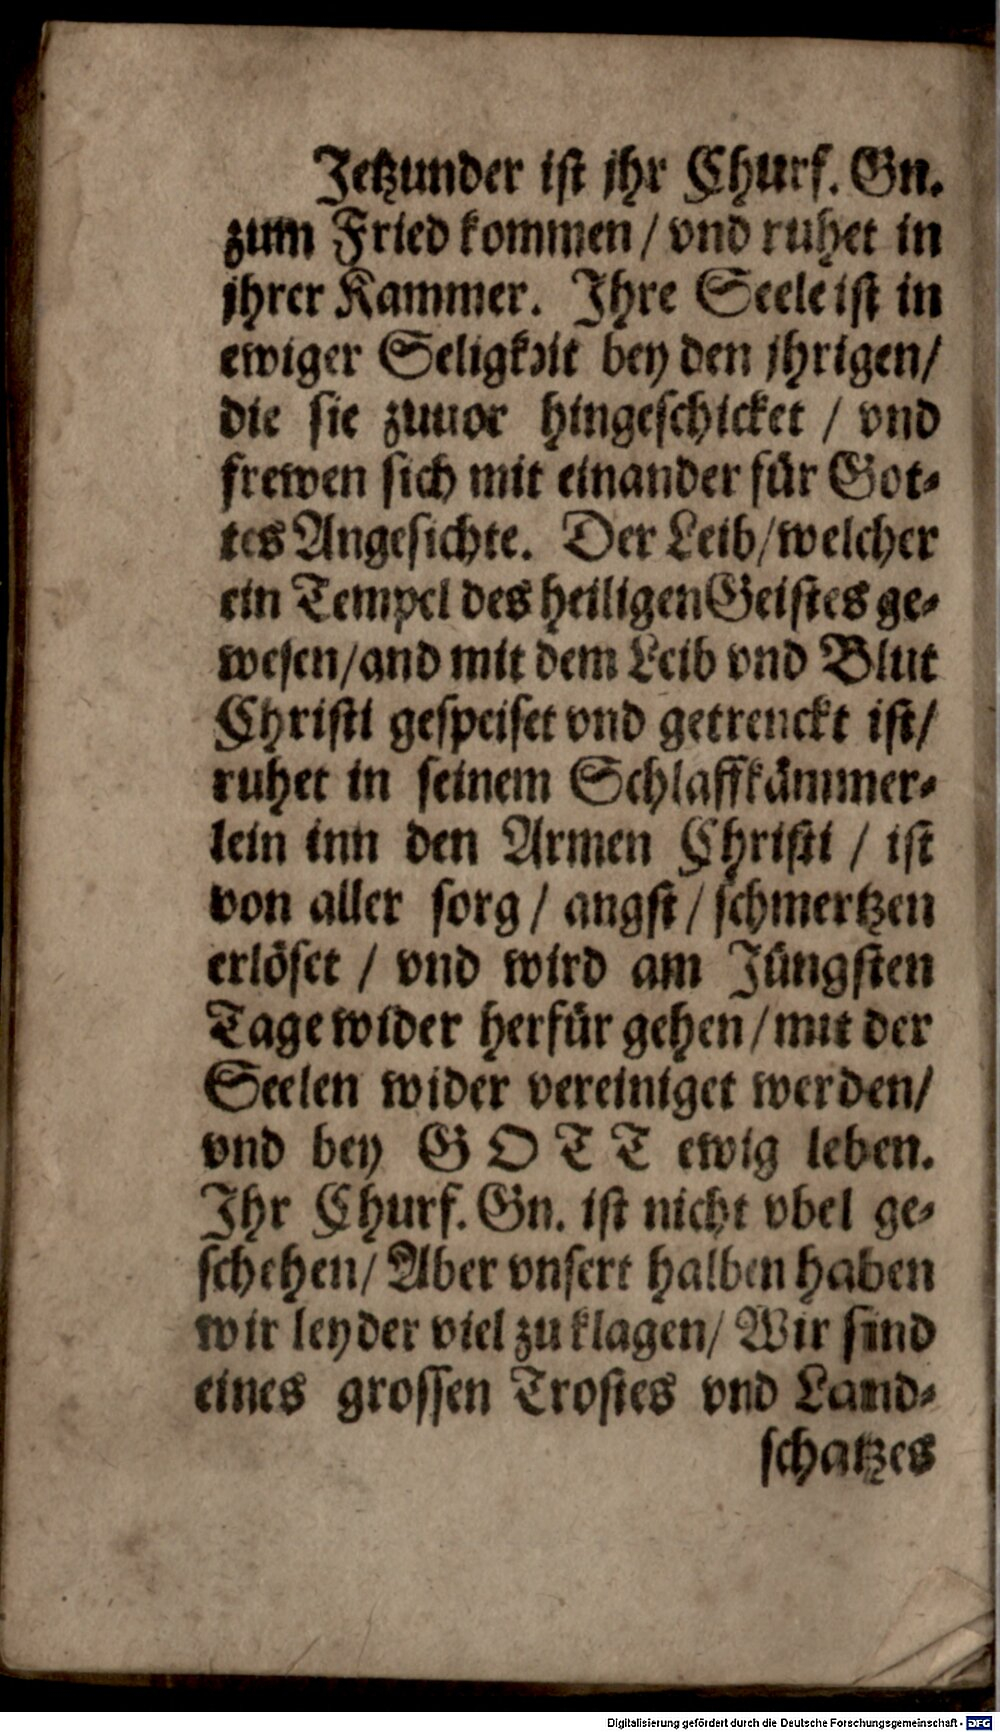 Jetzunder ist jhr Churf. Gn.
zum Fried kommen / vnd ruhet in
jhrer Kammer. Ihre Seele ist in
ewiger Seligkeit bey den jhrigen /
die sie zuuor hingeschicket / vnd
frewen sich mit einander für Got-
tes Angesichte. Der Leib / welcher
ein Tempel des heiligen Geistes ge-
wesen / and mit dem Leib vnd Blut
Christi gespeiset vnd getrenckt ist /
ruhet in seinem Schlaffkämmer-
lein inn den Armen Christi / ist
von aller sorg / angst / schmertzen
erlöset / vnd wird am Jüngsten
Tage wider herfür gehen / mit der
Seelen wider vereiniget werden /
vnd bey GOTT ewig leben.
Ihr Churf. Gn. ist nicht vbel ge-
schehen / Aber vnsert halben haben
wir leyder viel zu klagen / Wir sind
eines grossen Trostes vnd Land-
schatzes
Digitalisierung gefördert durch die Deutsche Forschungsgemeinschaft - DFG